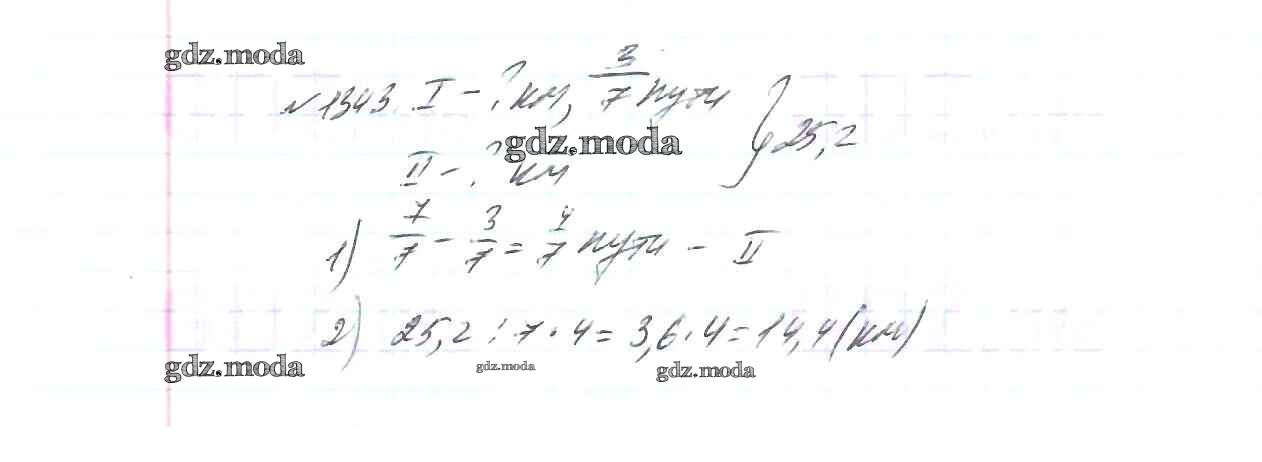 gdz.moda
№1343. I - ? км, 3/7 пути } 25,2
gdz.moda
II - ? км
1) 7/7 - 3/7 = 4/7 пути - II
2) 25,2 : 7 · 4 = 3,6 · 4 = 14,4 (км)
gdz.moda gdz.moda gdz.moda